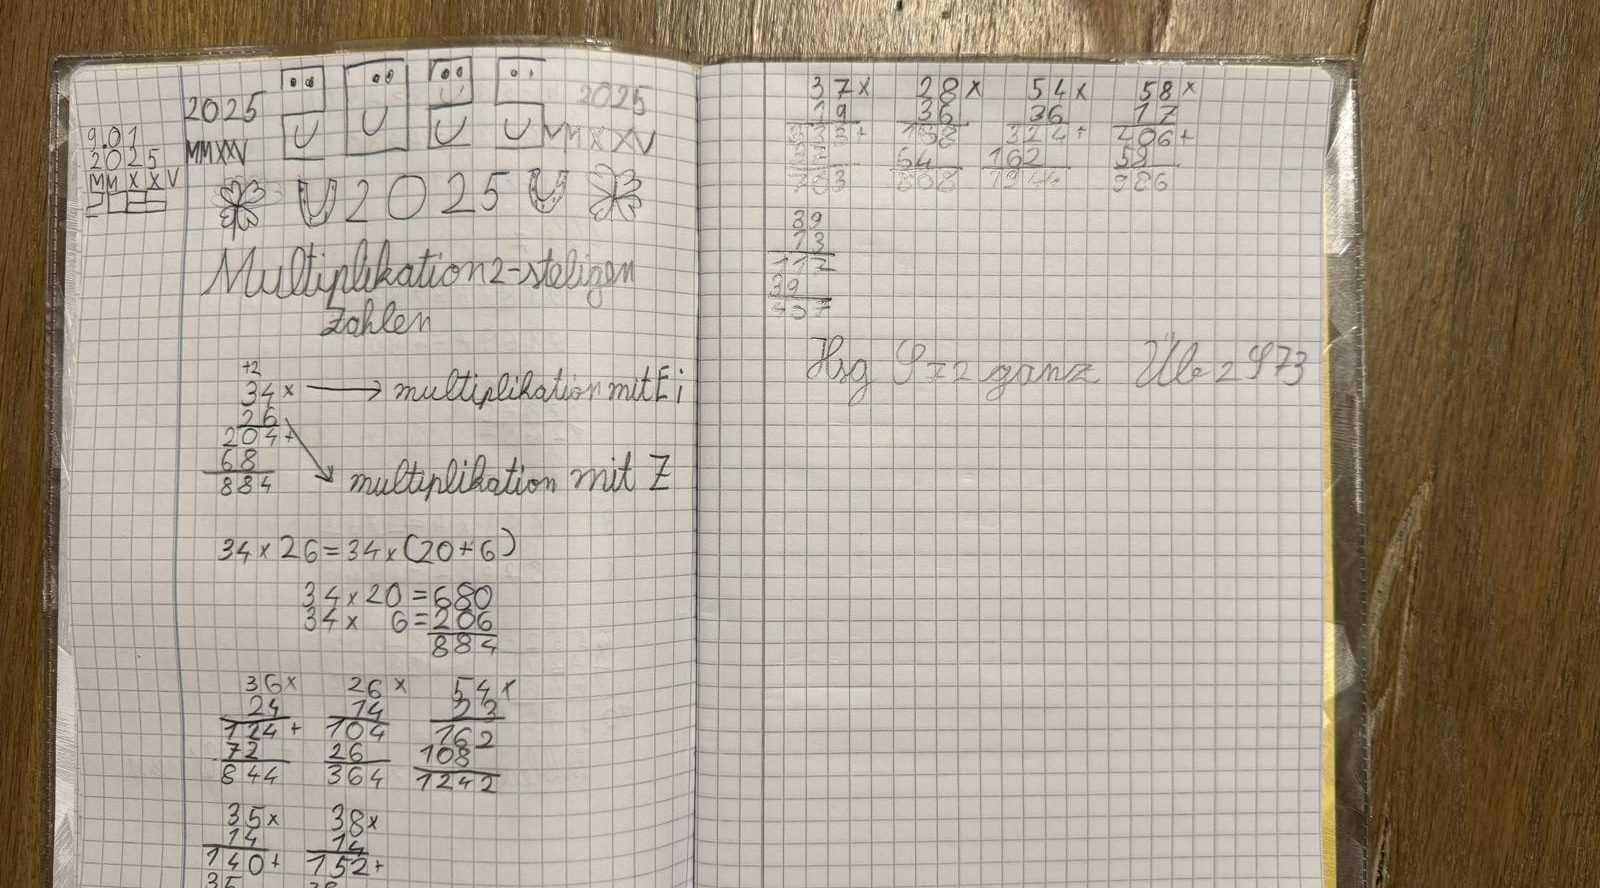 9.01
2025
MMXXV
2025
MMXXV
2025
MMXXV
2025
Multiplikation 2-steligen
Zahlen
+2
34 x → multiplikation mit E i
26
204 +
68
884
multiplikation mit Z
34 x 26 = 34 x (20 + 6)
34 x 20 = 680
34 x 6 = 206
884
36 x 26 x 54 x
24 14 23
124 + 104 162
72 26 108
844 364 1242
35 x 38 x
14 14
140 + 152 +
35 38
37 x 28 x 54 x 58 x
19 36 36 17
333 + 324 + 406 +
64 162 58
703 1944 986
39
13
117
39
Hsg S72 ganz Üb 2 S73